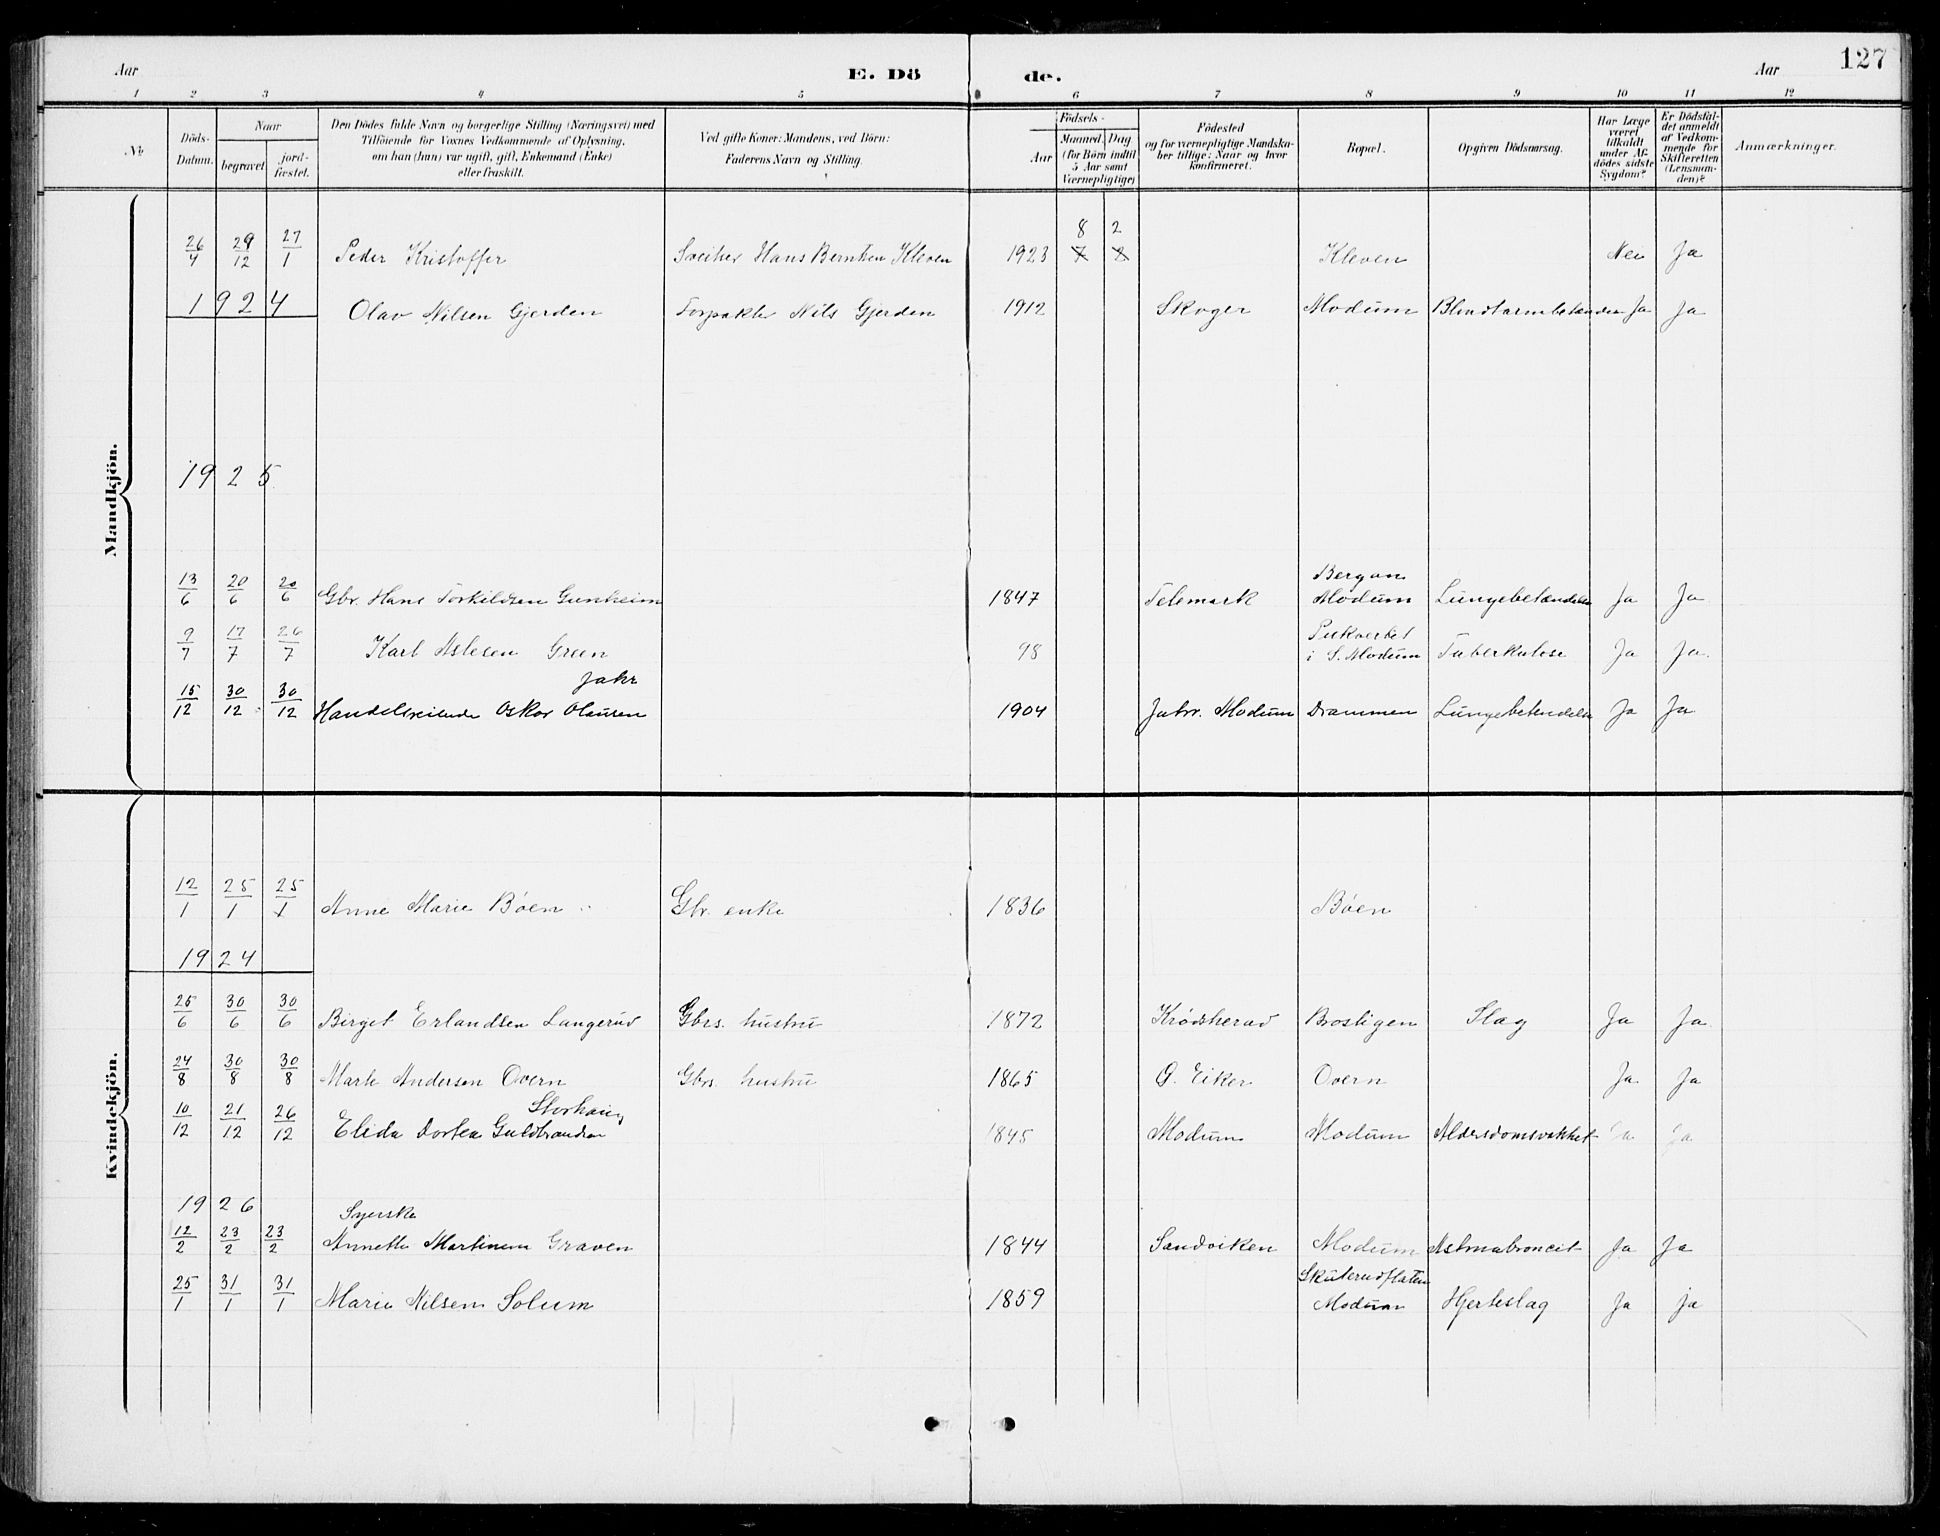 Aar E. Dö de. Aar 127
1 2 3 4 5 6 7 8 9 10 11 12
No
Döds-Datum.
Naar
begravet
jord-fæstet.
Den Dödes fulde Navn og borgerlige Stilling (Næringsvei) med
Tilföiende for Voxnes Vedkommende af Oplysning,
om han (hun) var ugift, gift, Enkemand (Enke)
eller fraskilt.
Ved gifte Koner: Mandens, ved Börn:
Faderens Navn og Stilling.
Födsels-
Aar
Maaned. Dag
(for Börn indtil
5 Aar samt
Værnepligtige)
Födested
og for værnepligtige Mandska-
ber tillige: Naar og hvor
konfirmeret.
Bopæl.
Opgiven Dödsaarsag.
Har Læge
været
tilkaldt
under Af-
dödes sidste
Sygdom?
Er Dödsfal-
det anmeldt
af Vedkom-
mende for
Skifteretten
(Lensman-
den)?
Anmærkninger.
Mandkjön.
8 2
26/4 29/12 27/1 Peder Kristoffer Sveitser Hans Berntsen Kleven 1923 7 2 Kleven Nei Ja
1924 Olav Nilsen Gjerden Forpakter Nils Gjerden 1912 Skoger Modum Blindtarmbetænden Ja Ja
1925
Bergan
13/6 20/6 20/6 Gbr. Hans Torkildsen Gunheim 1847 Telemark Modum Lungebetændelse Ja Ja
Pukverket
9/7 17/7 26/7 Karl Aslesen Green 98 i S. Modum Tuberkulose Ja Ja.
Jahr
15/12 30/12 30/12 Handelsreisende Oskar Olausen 1904 Jahr. Modum Drammen Lungebetendelse Ja Ja
Kvindekjön.
12/1 25/1 25/1 Anne Marie Bøen Gbr. enke 1836 Bøen
1924
25/6 30/6 30/6 Birget Erlandsen Langerud Gbrs. hustru 1872 Krødsherad Brostigen Slag Ja Ja
24/8 30/8 30/8 Marte Andersen Overn Gbrs. hustru 1865 Ø. Eiker Overn Ja Ja
Storhaug
10/12 21/12 26/12 Elida Dortea Guldbrandsen 1845 Modum Modum Aldersdomsvakhet Ja Ja
1926 Syerske
12/2 23/2 23/2 Annette Martinsen Graven 1844 Sandviken Modum Astmabroncit Ja Ja
Skuterudflaten
25/1 31/1 31/1 Marie Nilsen Solum 1859 Modum Hjerteslag Ja ja